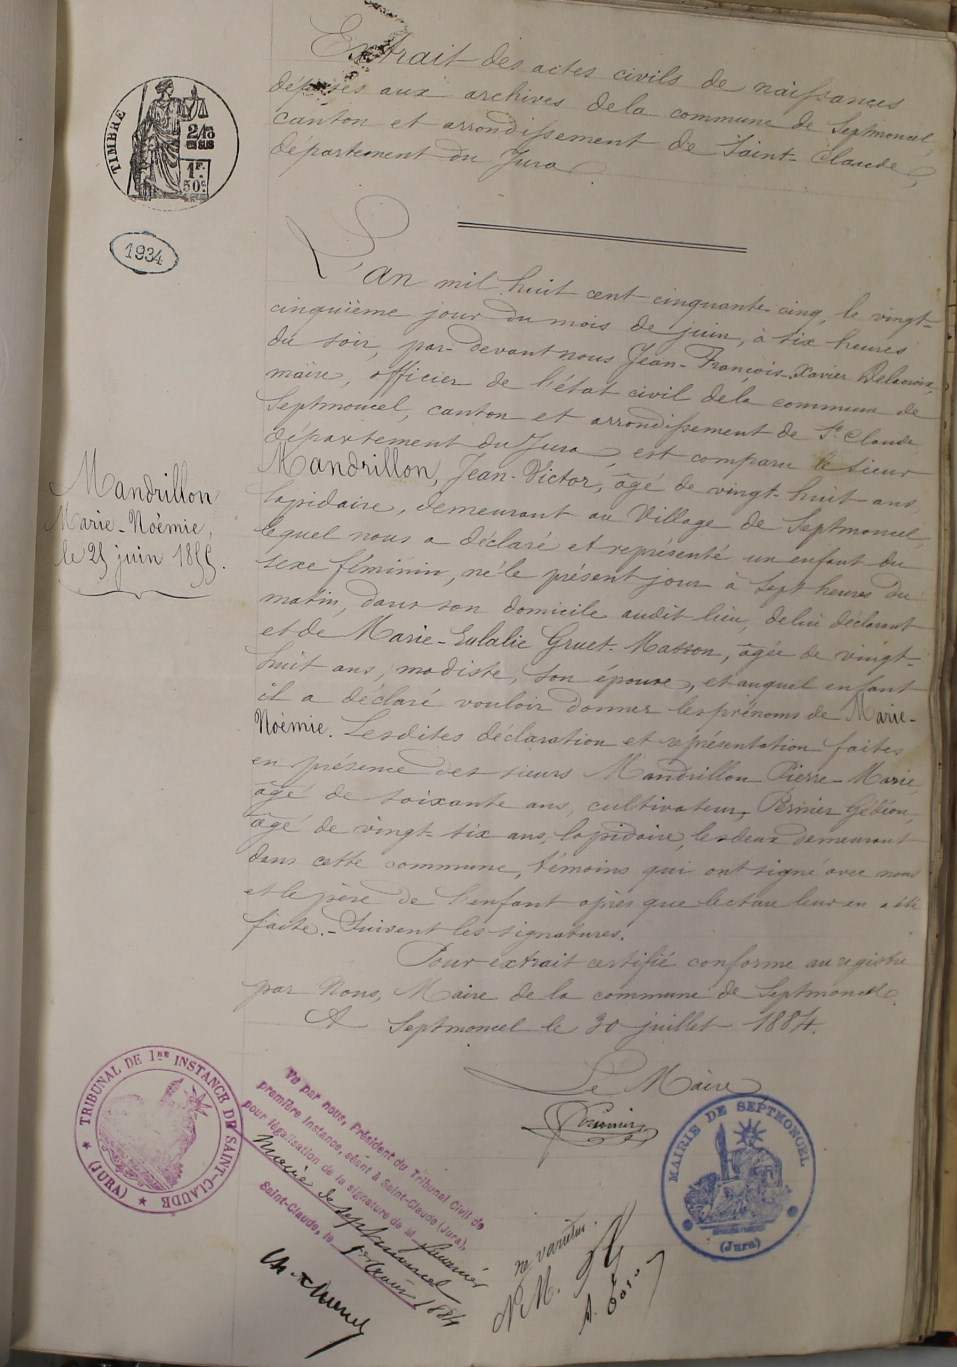 Extrait des actes civils de naissances
déposés aux archives de la commune de Septmoncel,
canton et arrondissement de Saint-Claude,
département du Jura
TIMBRE
2/10
EN SUS
1F.
50c
1934
L'an mil huit cent cinquante-cinq, le vingt-
cinquième jour du mois de juin, à six heures
du soir, par-devant nous Jean-François-Xavier Delacroix,
maire, officier de l'état civil de la commune de
Septmoncel, canton et arrondissement de St Claude
département du Jura, est comparu le sieur
Mandrillon, Jean-Victor, âgé de vingt-huit ans,
lapidaire, demeurant au Village de Septmoncel
lequel nous a déclaré et représenté un enfant du
sexe féminin, né le présent jour à sept heures du
matin, dans son domicile audit lieu, de lui déclarant
et de Marie-Eulalie Gruet-Masson, âgée de vingt-
huit ans, modiste, son épouse, et auquel enfant
il a déclaré vouloir donner les prénoms de Marie-
Noémie. Lesdites déclaration et représentation faites
en présence des sieurs Mandrillon Pierre-Marie,
âgé de soixante ans, cultivateur, Perrier Gédéon,
âgé de vingt-six ans, lapidaire, les deux demeurant
dans cette commune, témoins qui ont signé avec nous
et le père de l'enfant après que lecture leur en a été
faite.- Suivent les signatures.
Mandrillon
Marie-Noémie,
le 25 juin 1855.
Pour extrait certifié conforme au registre
par Nous, Maire de la commune de Septmoncel.
A Septmoncel le 30 juillet 1884.
Le Maire
TRIBUNAL DE 1RE INSTANCE DE SAINT-CLAUDE
(JURA)
Vu par nous, Président du Tribunal Civil de
première Instance, séant à Saint-Claude (Jura),
pour légalisation de la signature de M
Maire de Septmoncel
Saint-Claude, le 1er Août 1884
MAIRIE DE SEPTMONCEL
(Jura)
ne varietur.
N. M.